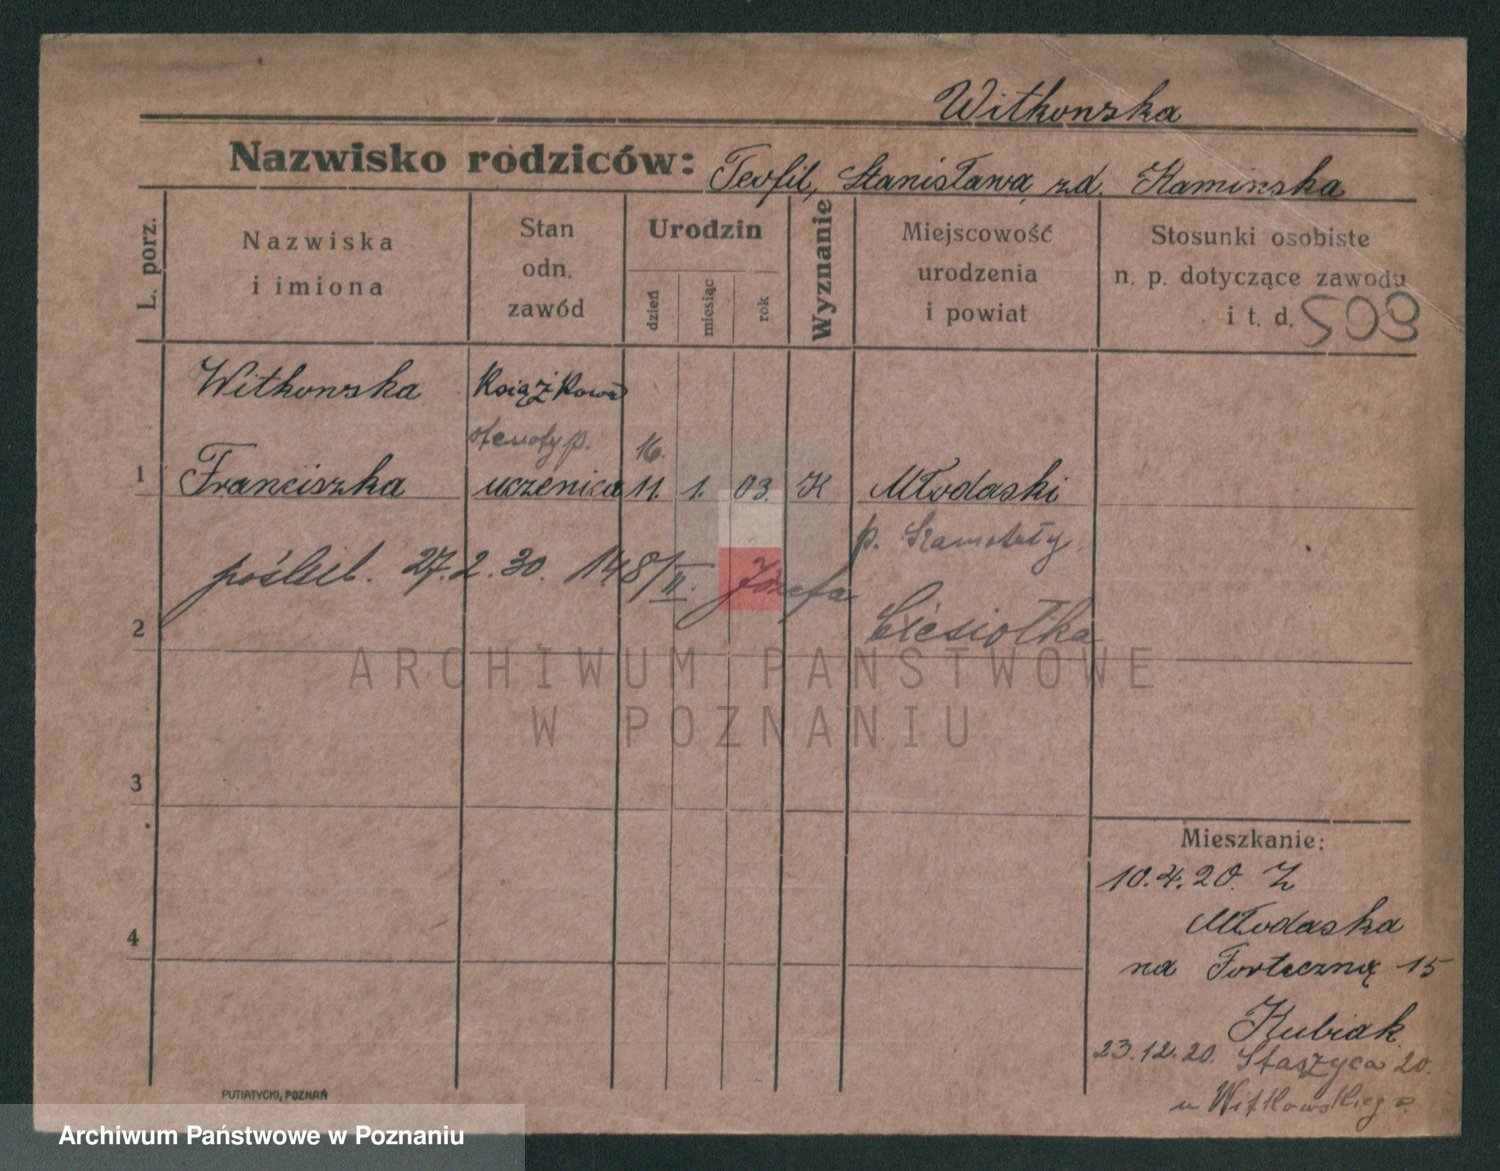 Witkowska
Nazwisko rodziców: Teofil, Stanisława, z.d. Kaminska
L. porz.
Nazwiska
i imiona
Stan
odn.
zawód
Urodzin
dzień
miesiąc
rok
Wyznanie
Miejscowość
urodzenia
i powiat
Stosunki osobiste
n. p. dotyczące zawodu
i t. d.
509
Witkowska Książkowa
stenotyp. 16.
1 Franciszka uczenica 11. 1. 03. K Młodaski
p. Szamotuły
poślub. 27.2.30. 148/II. Józefa
Ciesiołka
2
ARCHIWUM PAŃSTWOWE
W POZNANIU
3
Mieszkanie:
10.4.20. Z
Młodaska
4
na Forteczną 15
Kubiak
23.12.20. Staszyca 20.
u Witkowskiego
PUTIATYCKI, POZNAŃ
Archiwum Państwowe w Poznaniu